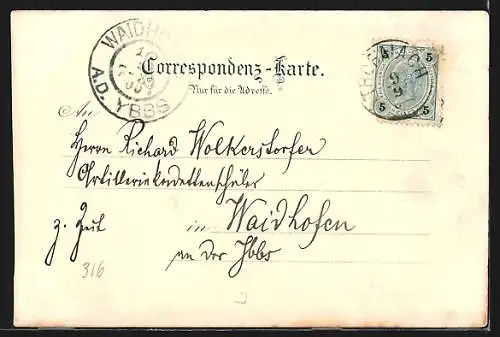 WAIDH
A.D. YBBS
Correspondenz-Karte.
Nur für die Adresse.
5 5
5 5
An
Herrn Richard Wolkerstorfer
Artilleriekadettenschüler
z. Zeit in Waidhofen
an der Ybbs
316